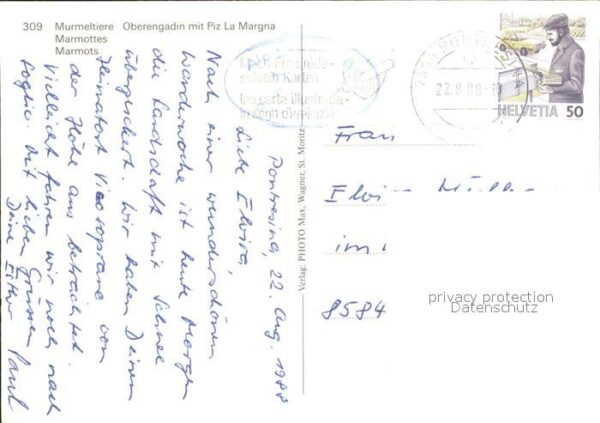 309 Murmeltiere Oberengadin mit Piz La Margna
Marmottes
Marmots
HELVETIA 50
22.8.88
Pontresina, 22. Aug. 1988
Liebe Elvira,
Nach einer wunderschönen
Wanderwoche ist heute Morgen
die Landschaft mit Schnee
überzuckert. Wir haben Deinen
Heimatort Vicosoprano von
der Höhe aus betrachtet.
Vielleicht fahren wir noch nach
Soglio. Mit lieben Grüssen
Deine Esther Paul
Verlag: PHOTO Max, Wagner, St. Moritz
Frau
Elvira
im
8584
privacy protection
Datenschutz